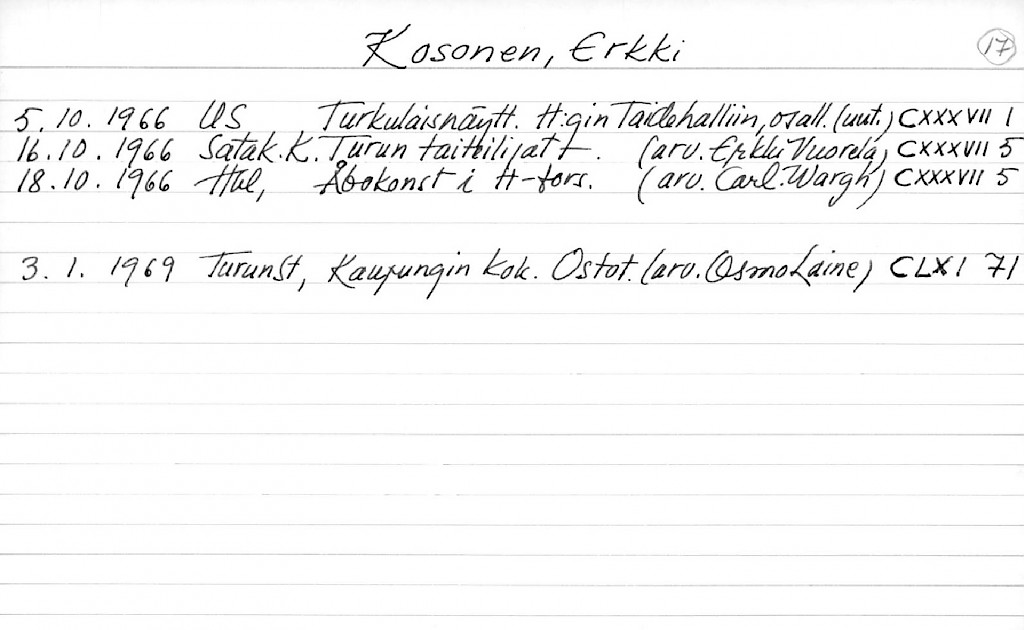 Kosonen, Erkki
17
5. 10. 1966 US Turkulaisnäytt. H:gin Taidehalliin, osall. (uut.) CXXXVII 1
16. 10. 1966 Satak. K. Turun taiteilijat (arv. Erkki Vuorela) CXXXVII 5
18. 10. 1966 Hbl, Åbokonst i H-fors. (arv. Carl. Wargh) CXXXVII 5
3. 1. 1969 TurunSt, Kaupungin kok. Ostot. (arv. Osmo Laine) CLXI 71